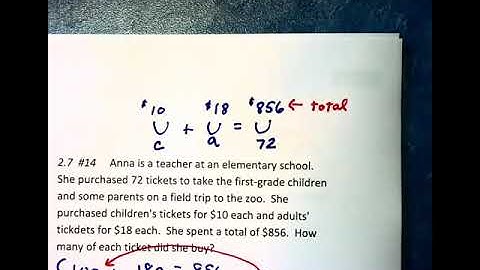 $10 $18 $856 ← total
U + U = U
c a 72
2.7 #14 Anna is a teacher at an elementary school.
She purchased 72 tickets to take the first-grade children
and some parents on a field trip to the zoo. She
purchased children's tickets for $10 each and adults'
tickdets for $18 each. She spent a total of $856. How
many of each ticket did she buy?